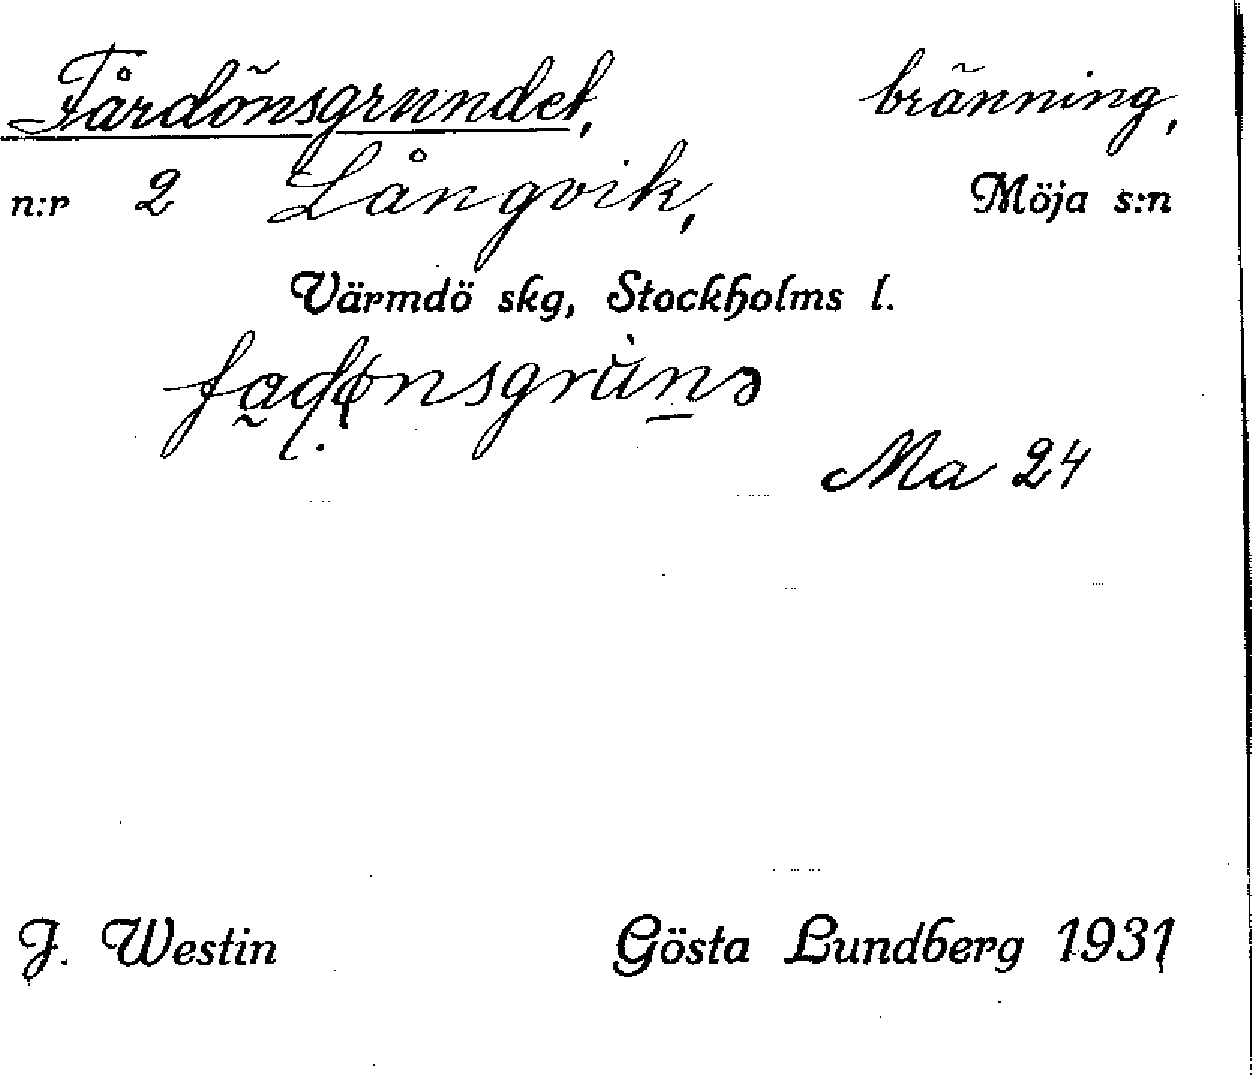 Fårdönsgrundet, bränning,
n:r 2 Långvik, Möja s:n
Värmdö skg, Stockholms l.
Ma 24
J. Westin Gösta Lundberg 1931